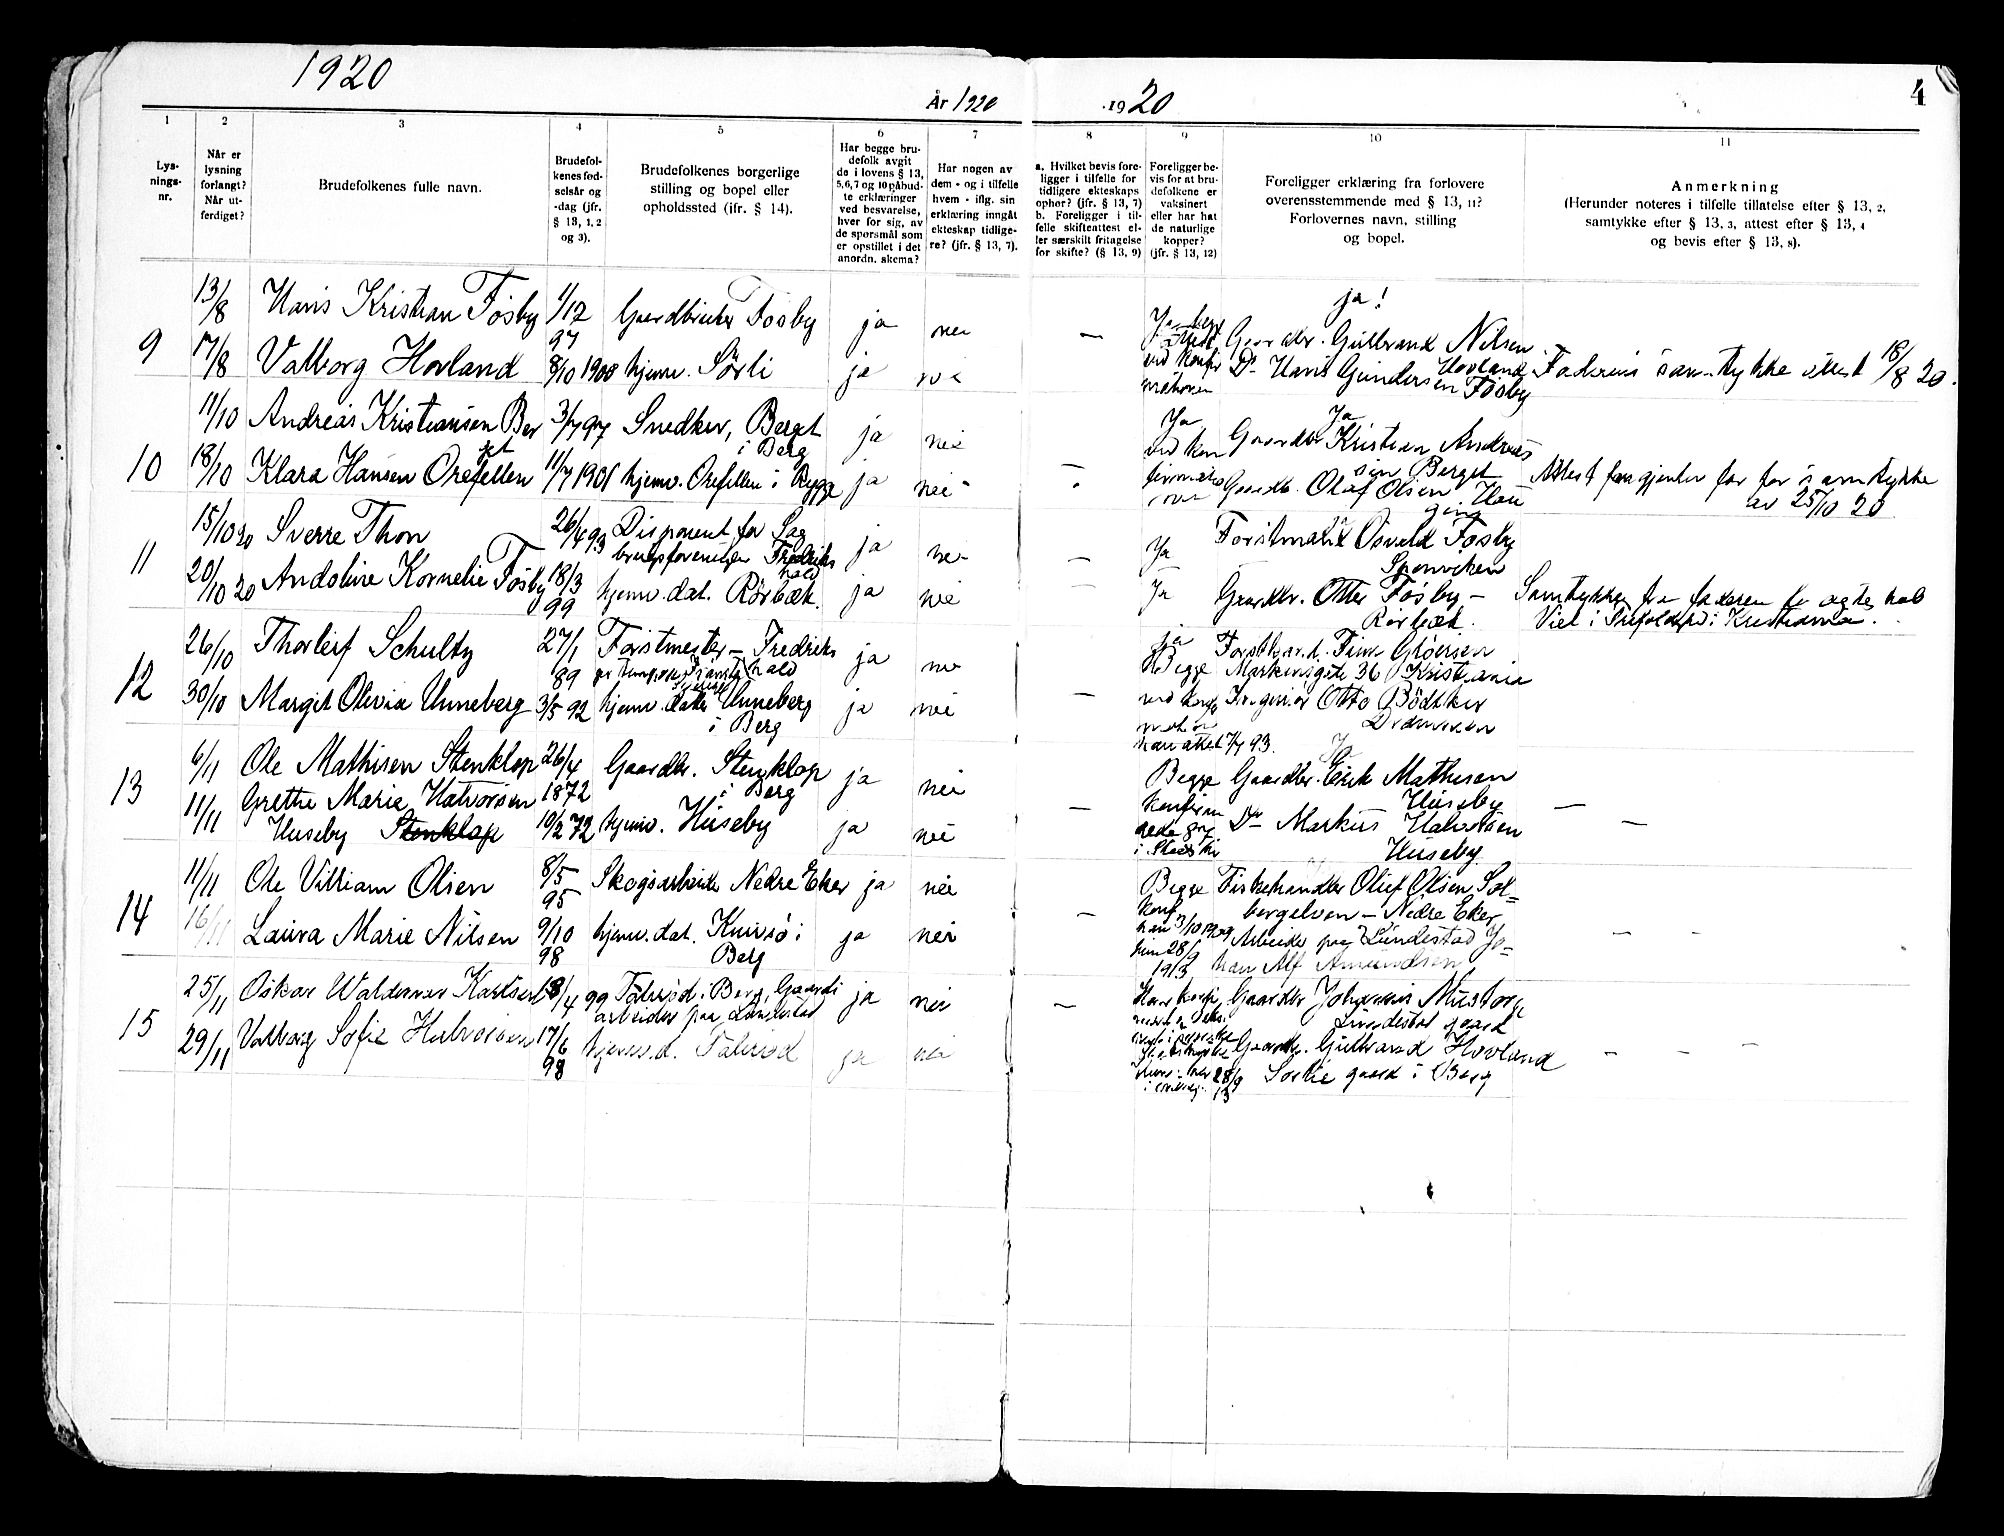 1920
År 1920
1920
4
1
2
3
4
5
6
7
8
9
10
11
Lys-
nings-
nr.
Når er
lysning
forlangt?
Når ut-
ferdiget?
Brudefolkenes fulle navn.
Brudefol-
kenes fød-
selsår og
-dag (jfr.
§ 13, 1, 2
og 3).
Brudefolkenes borgerlige
stilling og bopel eller
opholdssted (ifr. § 14).
Har begge bru-
defolk avgit
de i lovens § 13,
5,6,7 og 10 påbud-
te erklæringer
ved besvarelse,
hver for sig, av
de spørsmål som
er opstillet i det
anordn. skema?
Har nogen av
dem - og i tilfelle
hvem - iflg. sin
erklæring inngåt
ekteskap tidlige-
re? (jfr. § 13, 7).
a. Hvilket bevis fore-
ligger i tilfelle for
tidligere ekteskaps
ophør? (jfr. § 13, 7)
b. Foreligger i til-
felle skifteattest el-
ler særskilt fritagelse
for skifte? (§ 13, 9)
Foreligger be-
vis for at bru-
defolkene er
vaksinert
eller har hat
de naturlige
kopper?
(jfr. § 13, 12)
Foreligger erklæring fra forlovere
overensstemmende med § 13, 11?
Forlovernes navn, stilling
og bopel.
Anmerkning
(Herunder noteres i tilfelle tillatelse efter § 13, 2,
samtykke efter § 13, 3, attest efter § 13, 4
og bevis efter § 13, 8).
9
13/8 Hans Kristian Fosby 1/12 97 Gaardbruker Fosby ja nei
17/8 Valborg Hovland 8/10 1900 hjemv. Sörli ja nei
— Ja begge
ja!
Gaardbr. Gulbrand Nilsen Hovland
D. Hans Gundersen Fosby
Faderens samtykke attest 18/8 20.
10
11/10 Andreas Kristiansen Berget 3/7 97 Snedker, Berget i Berg ja nei
18/10 Klara Hansen Orefellen 11/7 1901 hjemv. Orefellen i Rygge ja nei
Ja
Ja
Gaardbr. Kristian Andreassen Berget
Gaardb. Olaf Olsen
Attest samtykke
av 25/10 20
11
15/10 20 Sverre Thon 26/4 93 Disponent for Sag
brugsforeningen Fredrikshald ja nei
20/10 20 Andoline Kornelie Fosby 18/3 99 hjemv. dat. Rörbæk. ja nei
— Ja
Ja
Osvald Fosby
Sponviken
Gaardbr. Otter Fosby —
Rörbæk.
Samtykke fra faderen
Viet i Kristiania.
12
26/10 Thorleif Schultz 27/1 89 Forstmester — Fredrikshald ja nei
30/10 Margit Olivia Unneberg 3/5 92 hjemv. datter Unneberg
i Berg ja nei
— ja
Begge
Finn Glöersen
Markveigate 36 Kristiania
Ingeniör Otto Bödtker
Drammen
13
6/11 Ole Mathisen Stenklop 26/4 1872 Gaardbr. Stenklop
i Berg ja nei
11/11 Grethe Marie Halvorsen
Huseby Stenklop 10/2 72 hjemv. Huseby ja nei
— Begge
Ja
Gaardbr. Erik Mathisen
Huseby
Do Markus Halvorsen
Huseby
— —
14
11/11 Ole Villiam Olsen 8/5 95 Skogsarbeider Nedre Eker ja nei
16/11 Laura Marie Nilsen 9/10 98 hjemv. dat. Knivsö i
Berg ja nei
— Begge
konf.
han 3/10 1909
hun 28/9
1913
Fiskehandler Oluf Olsen Sol-
bergelven — Nedre Eker
Arbeider paa Lundestad Jo-
han Alf Amundsen
— —
15
25/11 Oskar Waldemar Karlsen 18/4 99 i Berg, Gaards
arbeider paa Lundestad ja nei
29/11 Valborg Sofie Halvorsen 17/6 98 hjemv. d. ja nei
—
28/9
13
Gaardbr Johannes
Lundestad gaard
Gaardbr. Gulbrand Hovland
Sörlie gaard i Berg
— — —